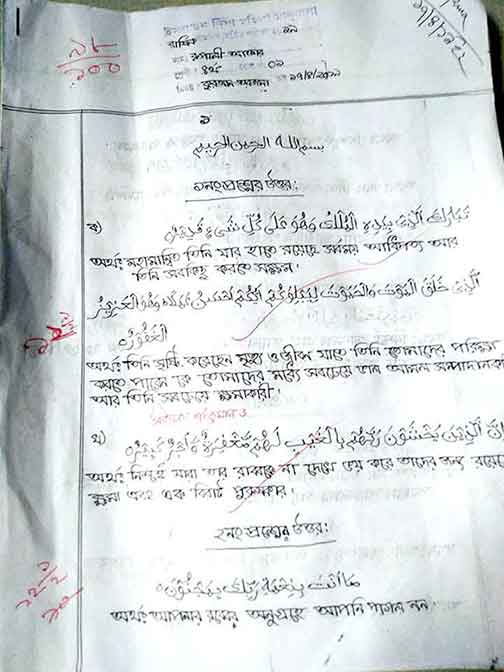 ৯৮
১০০
বার্ষিক
০১
১৭/৪/২০১৯
১
بسم الله الرحمن الرحيم
১নং প্রশ্নের উত্তর:
ক) تَبَارَكَ الَّذِي بِيَدِهِ الْمُلْكُ وَهُوَ عَلَى كُلِّ شَيْءٍ قَدِيرٌ
অর্থ: মহামান্বিত তিনি যার হাতে রয়েছে সর্বময় আধিপত্য আর
তিনি সবকিছু করতে সক্ষম।
الَّذِي خَلَقَ الْمَوْتَ وَالْحَيٰوتَ لِيَبْلُوَكُمْ اَيُّكُمْ اَحْسَنُ عَمَلًا وَهُوَ الْعَزِيْزُ
الْغَفُوْرُ
অর্থ: তিনি সৃষ্টি করেছেন মৃত্যু ও জীবন যাতে তিনি তোমাদের পরিক্ষা
করতে পারেন কে তোমাদের মধ্যে সবচেয়ে ভাল আমল সম্পাদনকারী
আর তিনি সবচেয়ে ক্ষমাকারী।
খ) اِنَّ الَّذِيْنَ يَخْشَوْنَ رَبَّهُمْ بِالْغَيْبِ لَهُمْ مَّغْفِرَةٌ وَّاَجْرٌ كَبِيْرٌ
অর্থ: নিশ্চয়ই যারা তার রবকে না দেখে ভয় করে তাদের জন্য রয়েছে
ক্ষমা এবং এক বিরাট পুরুষ্কার।
২নং প্রশ্নের উত্তর:
مَا اَنْتَ بِنِعْمَةِ رَبِّكَ بِمَجْنُوْنٍ
অর্থ: আপনার রবের অনুগ্রহে আপনি পাগল নন।